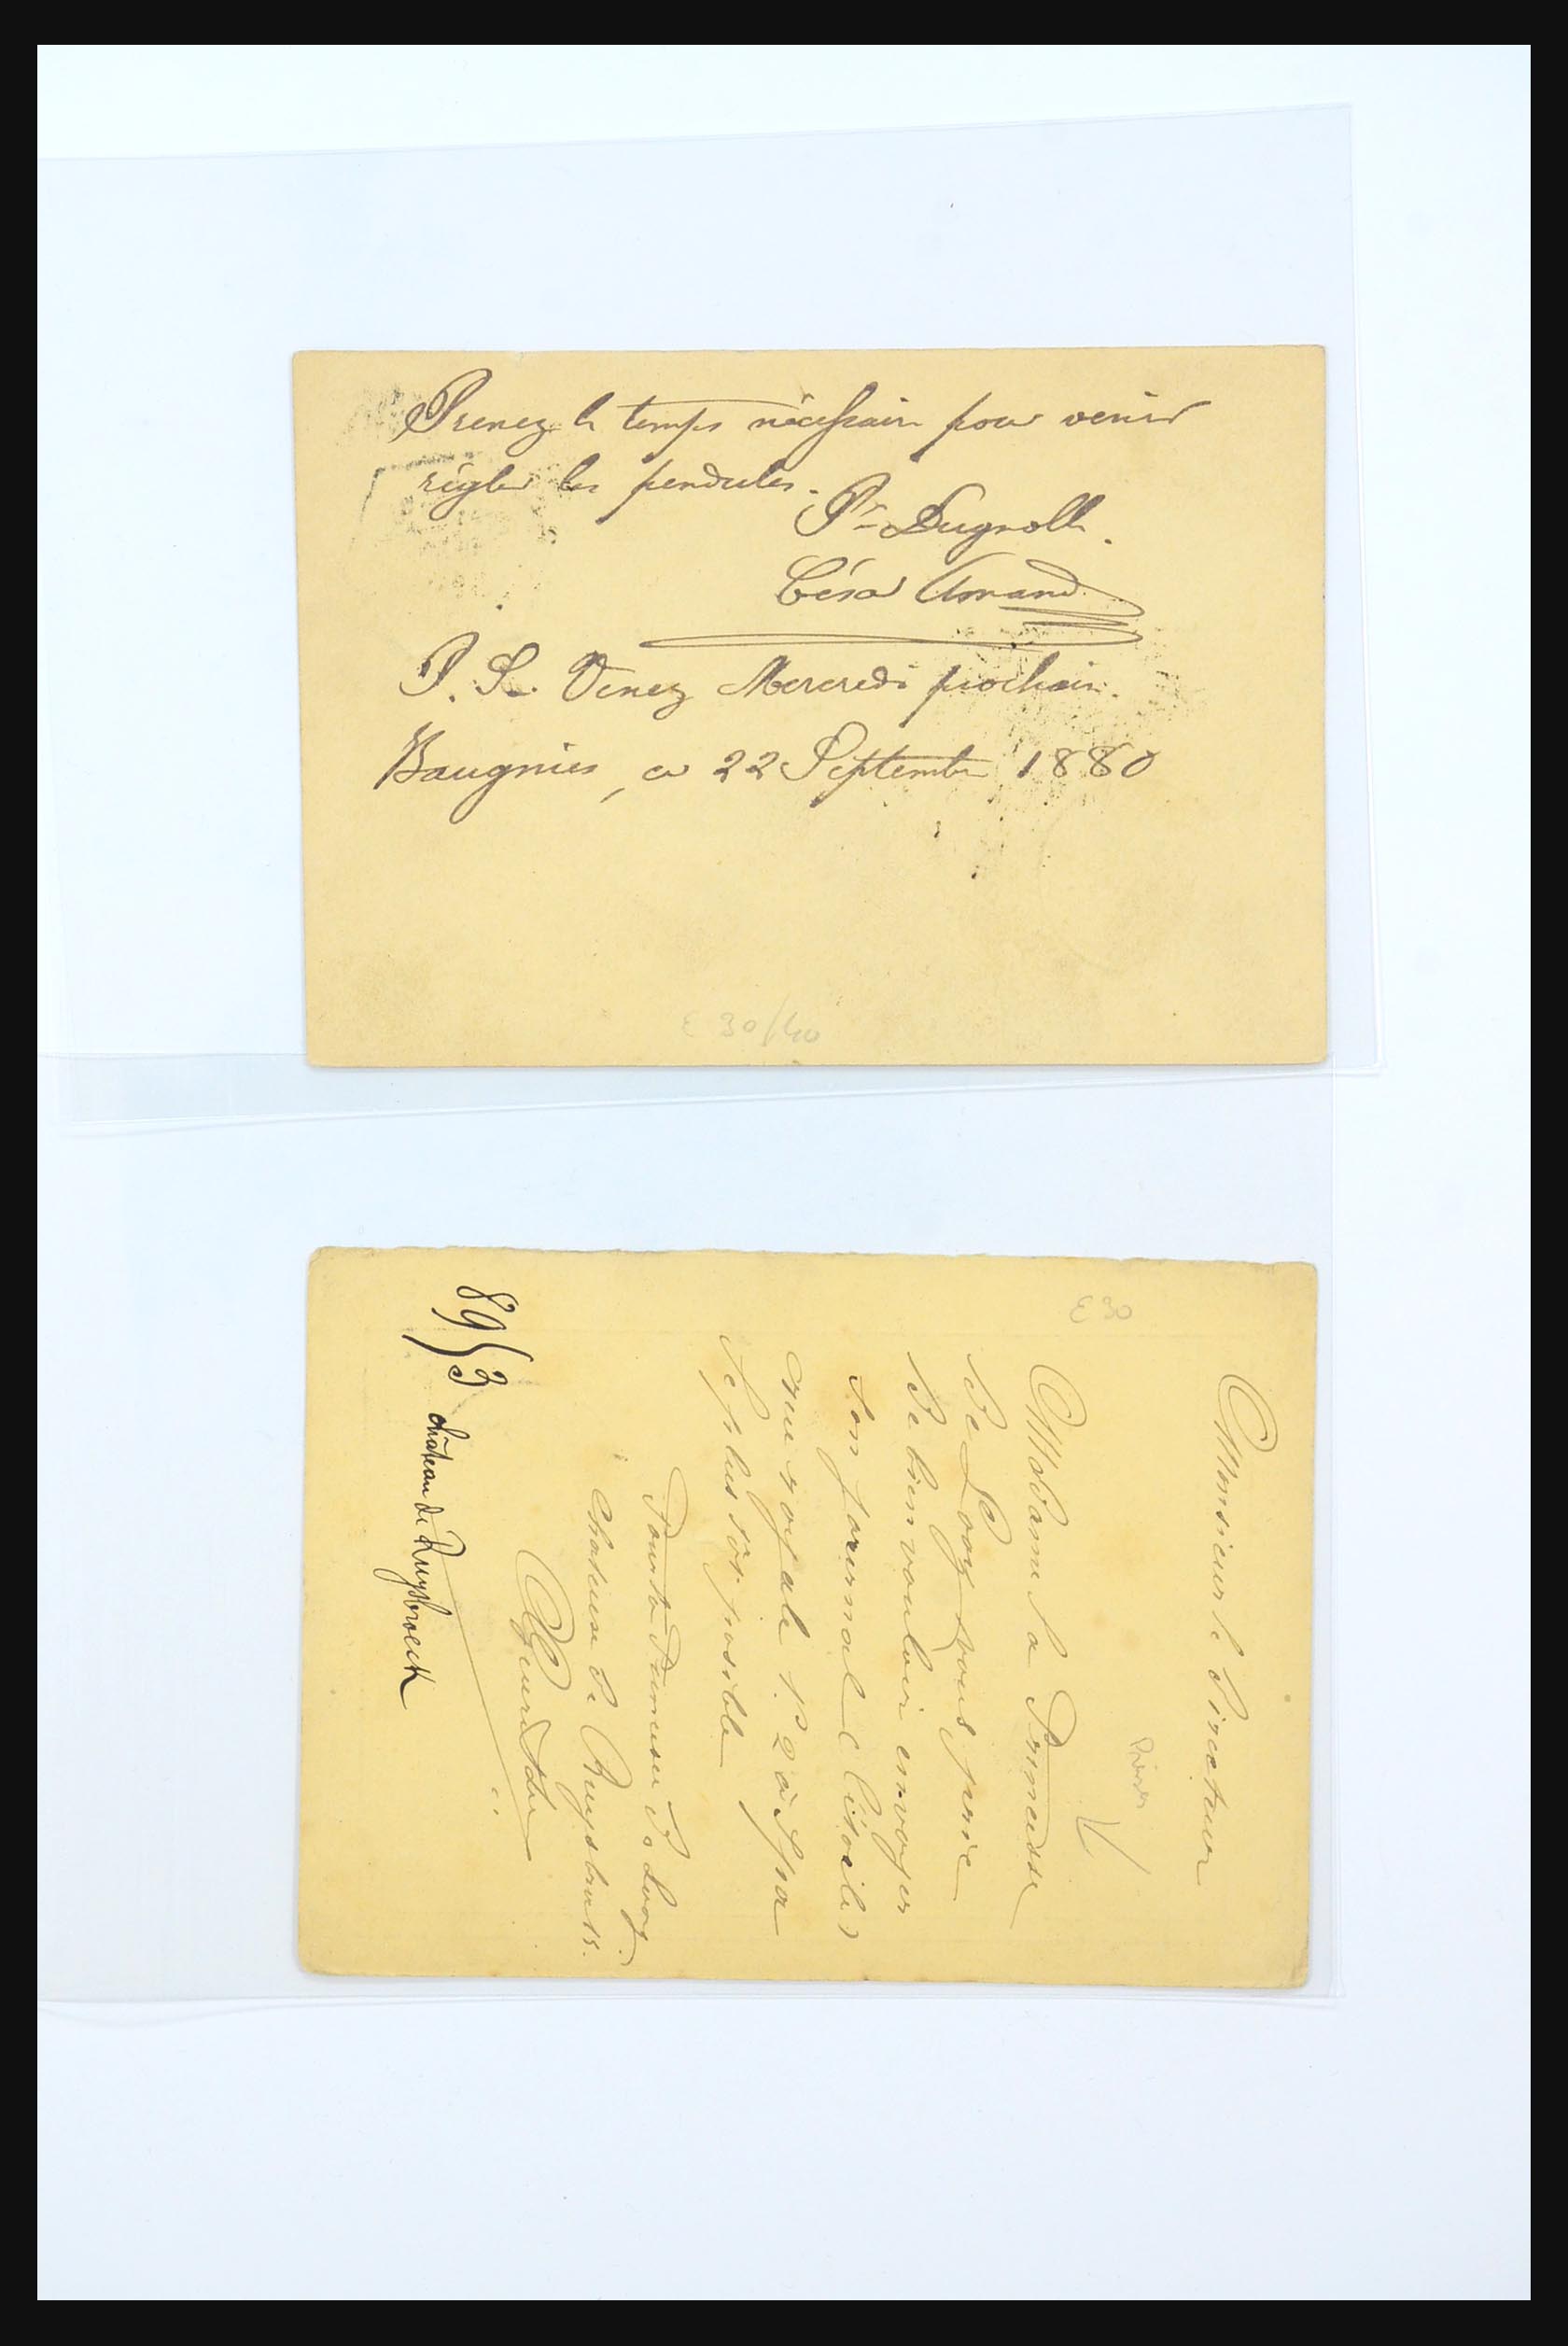 Prenez le temps nécessaire pour venir
régler les pendules.
Pr Dugnolle.
César Amand
P. S. Venez Mercredi prochain.
Baugnies, ce 22 Septembre 1880
E 30/40
E 30
Monsieur le Directeur
Madame La Princesse
de Looz vous prie
de bien vouloir envoyer
son journal (l'étoile)
rue royale No 2 à Spa
le plus tôt possible
Pour la Princesse de Looz.
Chateau de Ruysbroeck.
89/3 château de Ruysbroeck